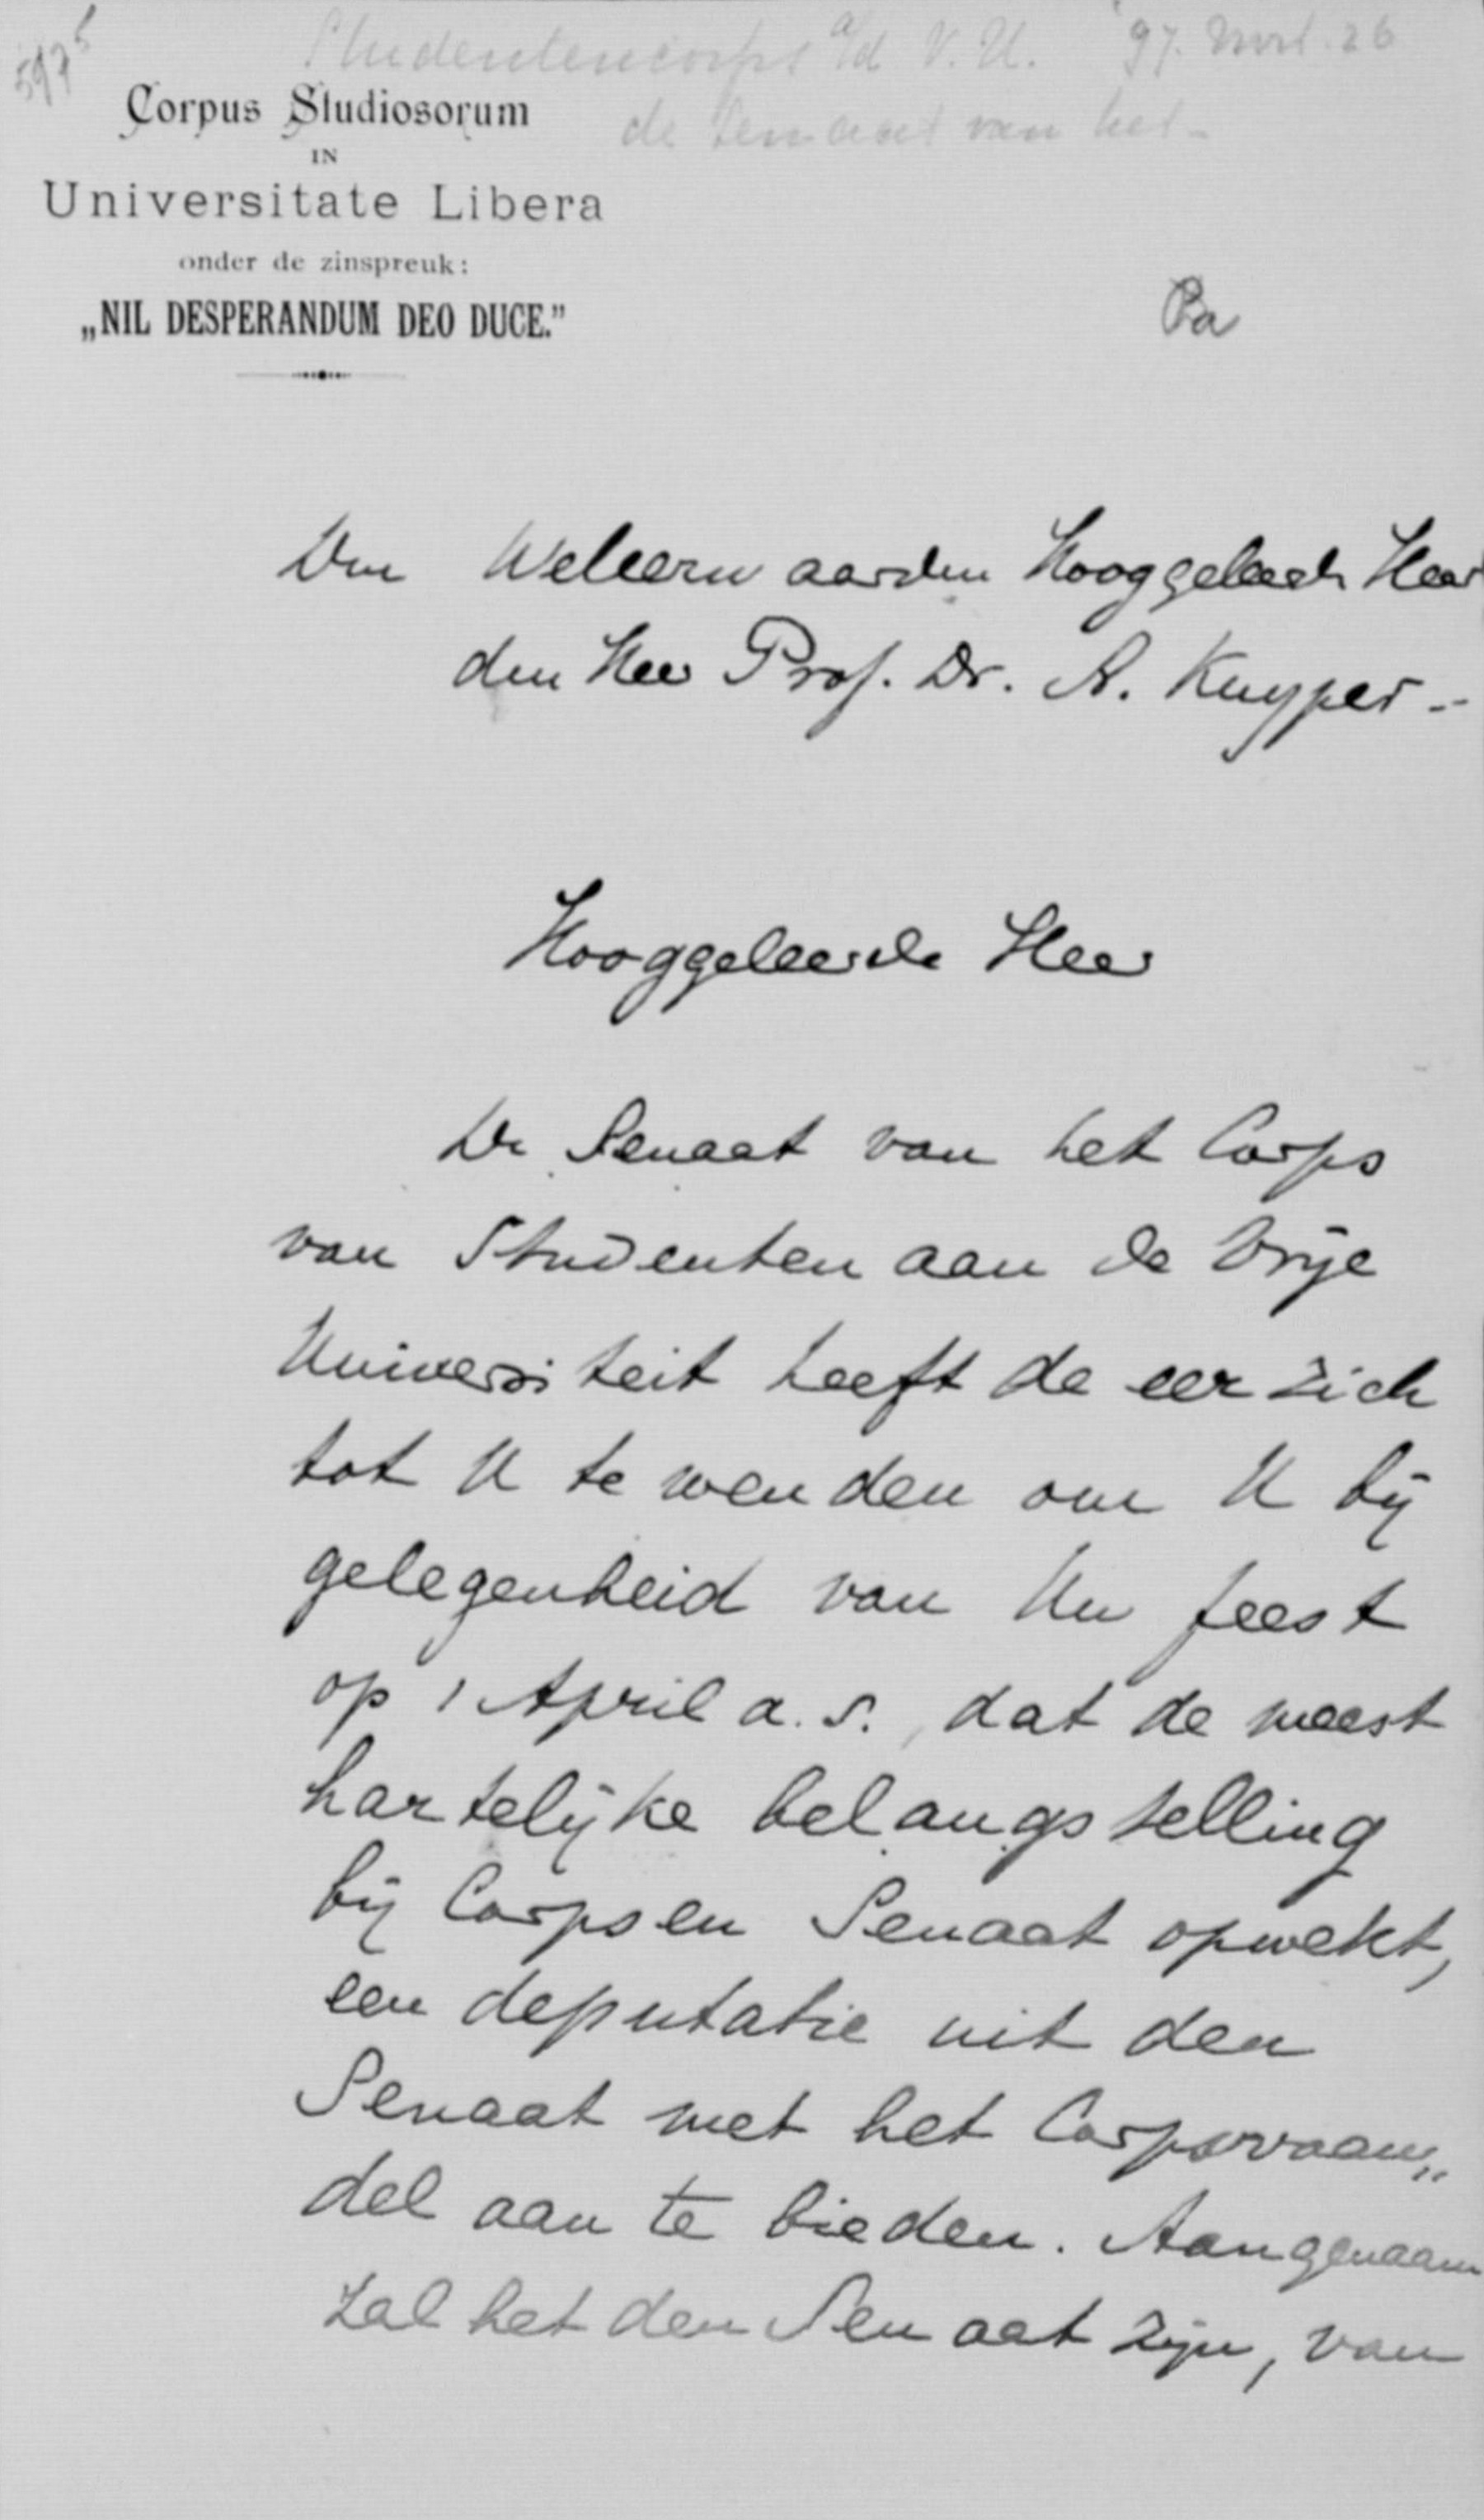 5975
Studentencorps a/d V.U. '97. Mrt. 26
de Senaat van het -
Corpus Studiosorum
IN
Universitate Libera
onder de zinspreuk:
„NIL DESPERANDUM DEO DUCE.”
Pa
Den Weleerwaarden Hooggeleerde Heer
den Heer Prof. Dr. A. Kuyper -
Hooggeleerde Heer
De Senaat van het Corps
van Studenten aan de Vrije
Universiteit heeft de eer zich
tot U te wenden om U bij
gelegenheid van Uw feest
op 1 April a.s., dat de meest
hartelijke belangstelling
bij Corps en Senaat opwekt,
een deputatie uit den
Senaat met het Corpsvaan„
del aan te bieden. Aangenaam
zal het den Senaat zijn, van